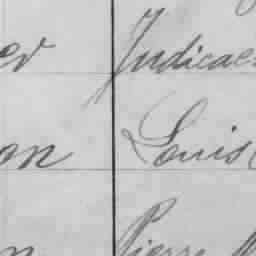 er Judicae
on Louis
n Pierre